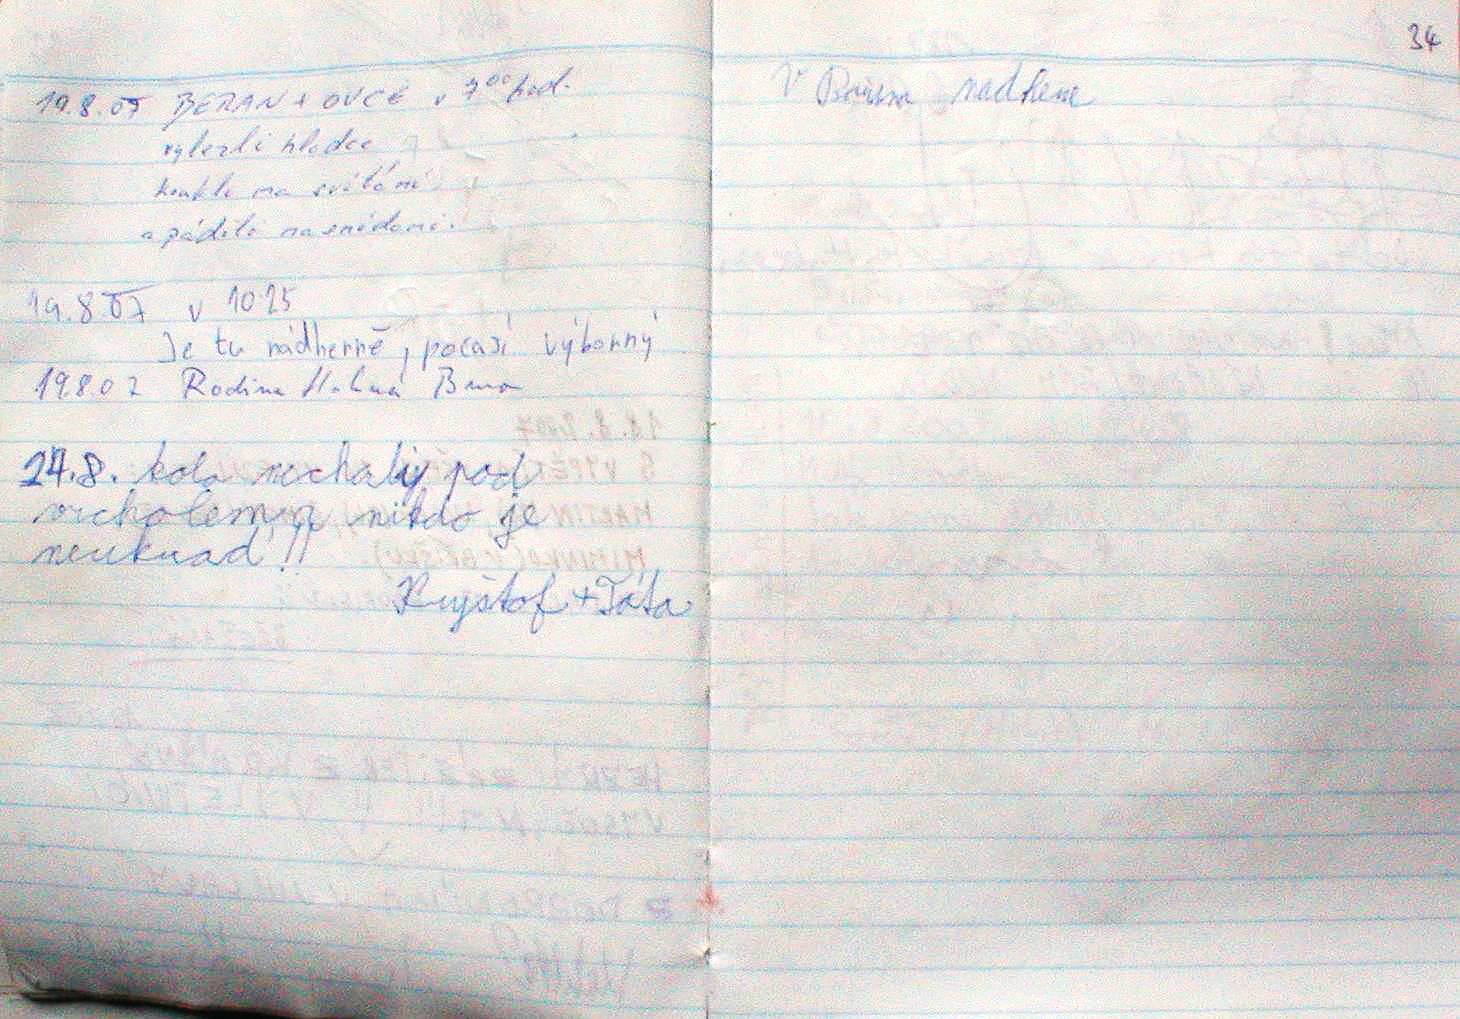 19.8.07 BERAN + OVCE v 7⁰⁰ hod.
vylezli hladce
koukli na svítání
a pádili na snídani.
19.8.07 v 10.25
Je tu nádherně, počasí výborný
19.8.07 Rodina Brno
24.8. kola nechaly pod
vrcholem a nikdo je
neukrad!!
Kryštof + Táta
34
V